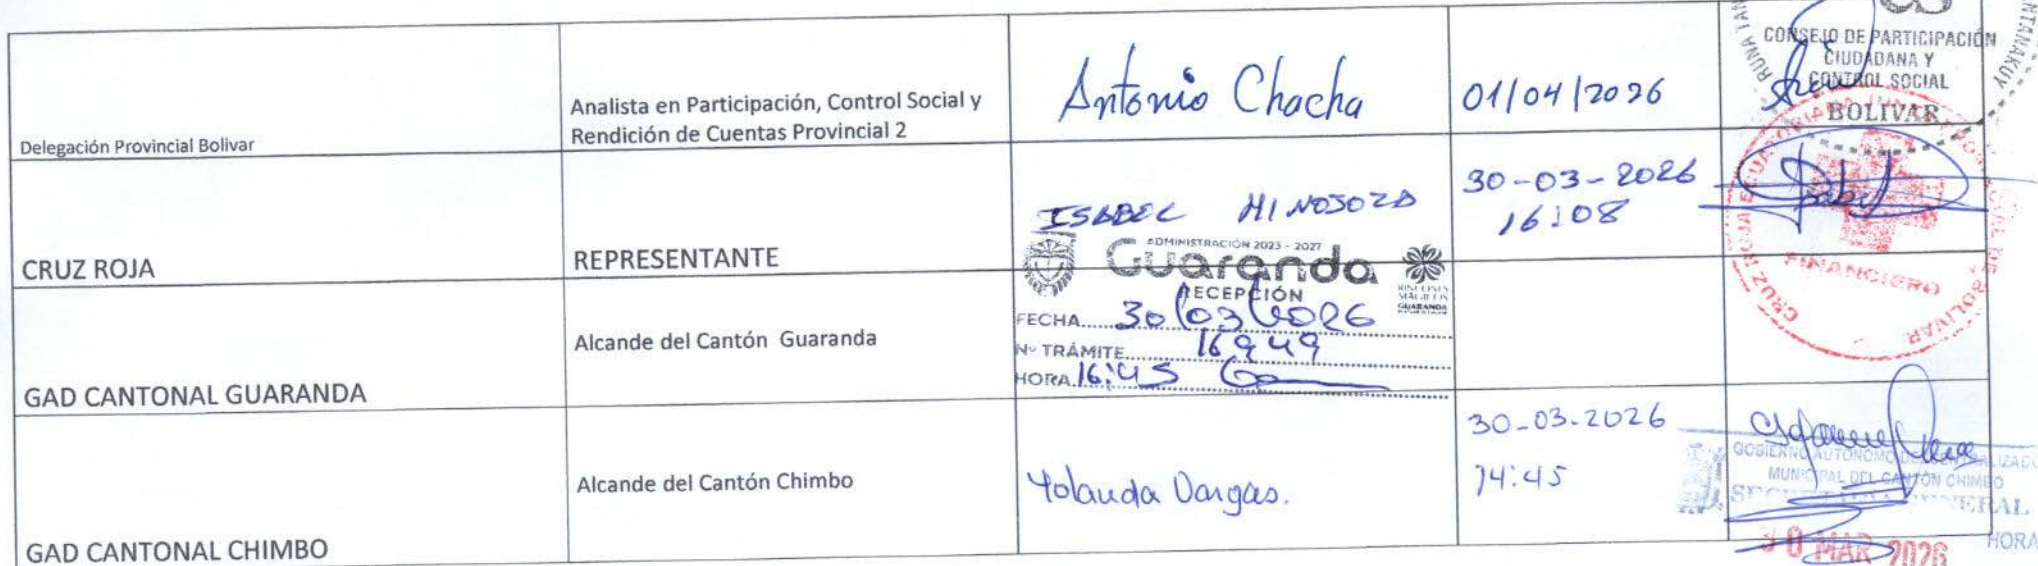 Delegación Provincial Bolivar
Analista en Participación, Control Social y
Rendición de Cuentas Provincial 2
Antonio Chacha
01/04/2026
RUNA
CONSEJO DE PARTICIPACIÓN
CIUDADANA Y
CONTROL SOCIAL
BOLIVAR
CRUZ ROJA
REPRESENTANTE
ISABEL HINOJOZA
30-03-2026
16:08
CRUZ ROJA ECUATORIANA
FINANCIERO
BOLIVAR
GAD CANTONAL GUARANDA
Alcande del Cantón Guaranda
ADMINISTRACIÓN 2023 - 2027
Guaranda
RECEPCIÓN
GUARANDA
FECHA 30/03/2026
Nº TRÁMITE 16949
HORA 16:45
GAD CANTONAL CHIMBO
Alcande del Cantón Chimbo
Yolanda Vargas.
30-03-2026
14:45
GOBIERNO AUTÓNOMO DESCENTRALIZADO
MUNICIPAL DEL CANTÓN CHIMBO
SECRETARIA GENERAL
30 MAR 2026
HORA